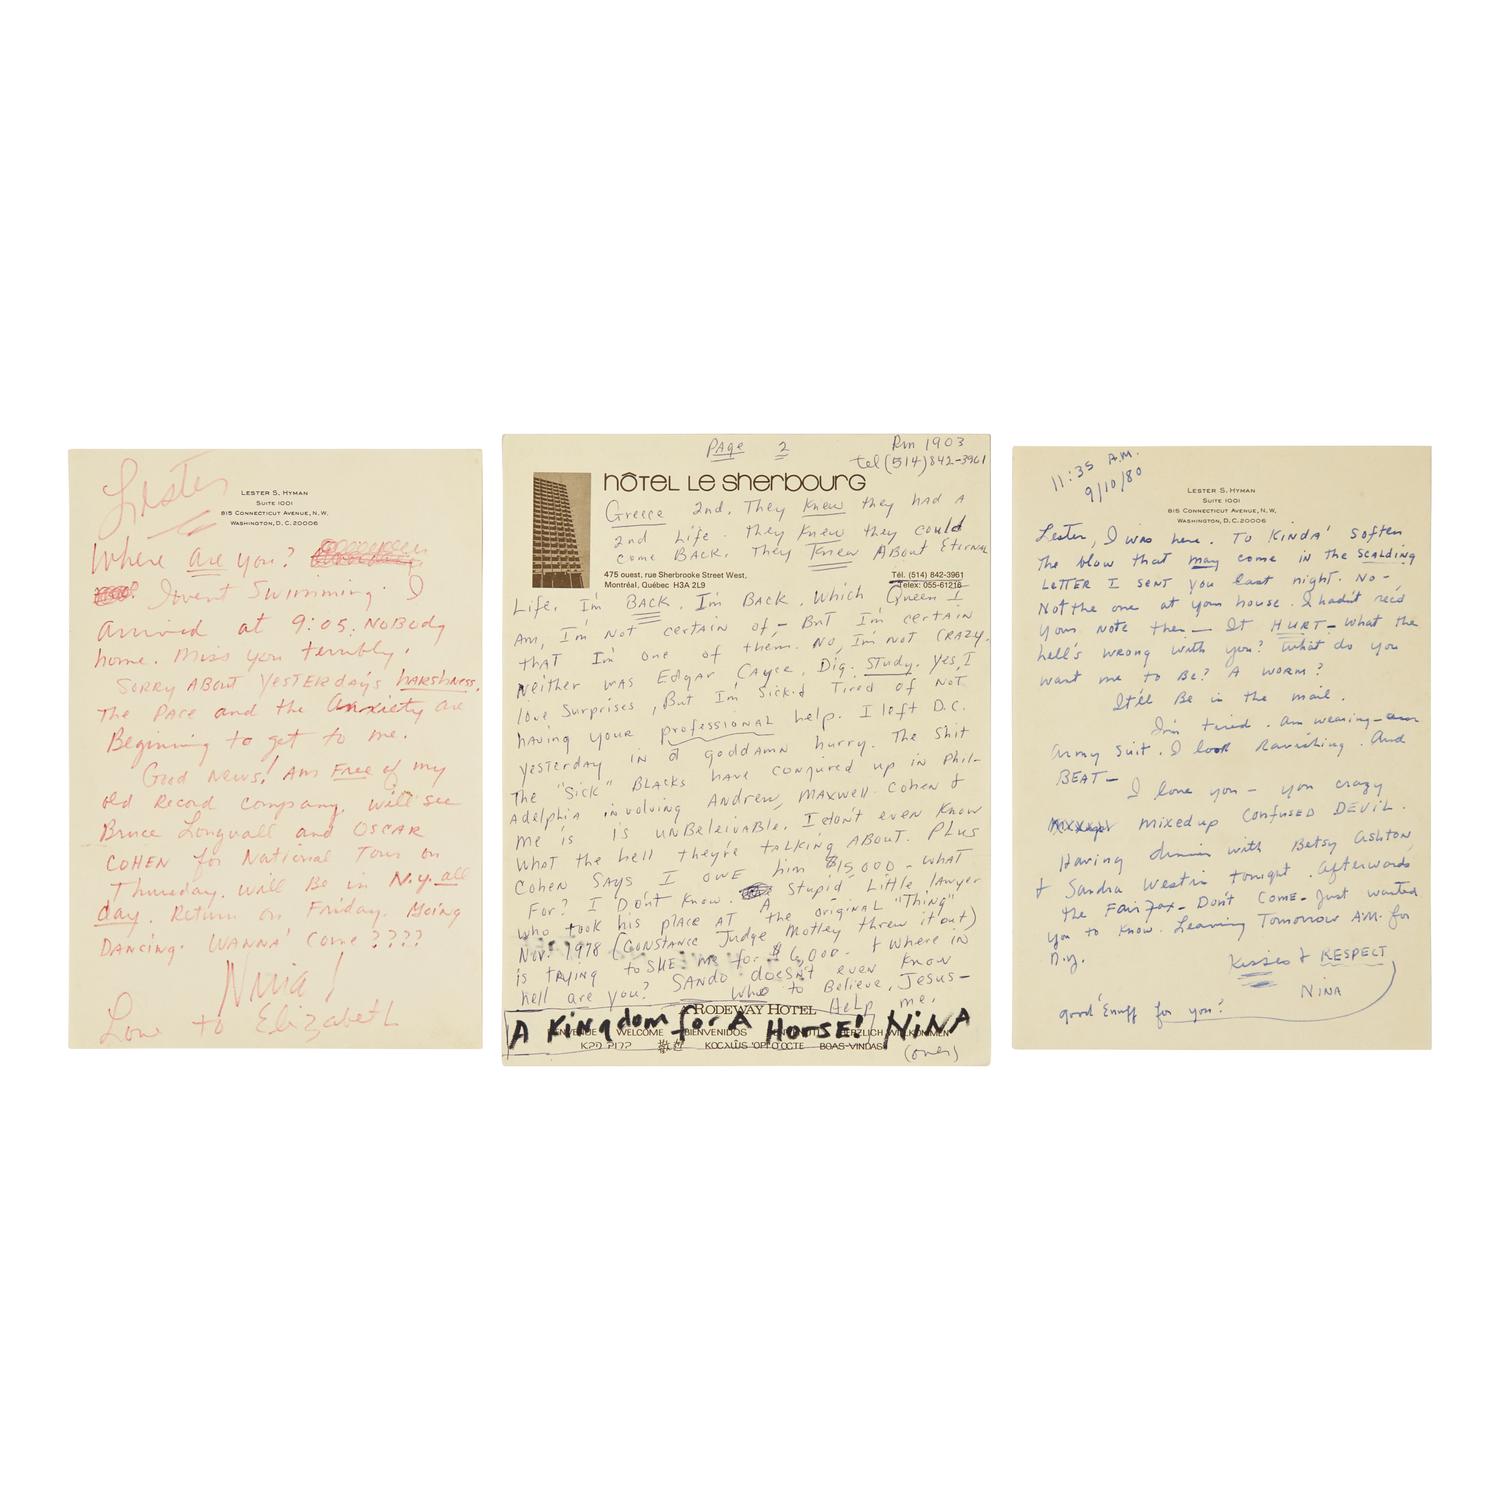 Lester
LESTER S. HYMAN
SUITE 1001
815 CONNECTICUT AVENUE, N.W.
WASHINGTON, D.C. 20006
Where are you?
I went Swimming. I
arrived at 9:05. NOBODY
home. Miss you terribly.
SORRY ABOUT YESTERday's harshness.
The PACE and the Anxiety are
Beginning to get to me.
Good News! Am Free of my
old Record company. Will see
Bruce Longvall and OSCAR
COHEN for National Tour on
Thursday. Will Be in N.Y. all
day. Return on Friday. Going
DANCING. WANNA' Come????
Nina!
Love to Elizabeth
PAge 2
Rm 1903
tel (514) 842-3961
hôtel le sherbourg
Greece 2nd. They Knew they had A
2nd Life. they Knew they could
come BACK. They Knew ABout Eternal
475 ouest, rue Sherbrooke Street West,
Montréal, Québec H3A 2L9
Tél. (514) 842-3961
Telex: 055-61216
Life. I'm BACK. I'm BACK. Which Queen I
Am, I'm Not certain of - BuT I'm certain
thAT I'm one of them. No, I'm NoT CRAZY.
Neither was Edgar Cayce. Dig. Study. Yes, I
love Surprises, But I'm Sick'd Tired of NoT
having your professional help. I left D.C.
yesterday in a goddAmn hurry. The Shit
The "Sick" BLAcks have conjured up in Phil-
Adelphia involving Andrew, Maxwell Cohen &
me is is uNBeleivaBle. I don't even Know
whaT the hell they're tALking ABouT. PLus
Cohen SAys I owe him $15,000 - whAT
For? I DonT Know. A stupid Little lawyer
who took his place AT the original "Thing"
Nov. 1978 (Constance Judge Motley threw it out)
is trying to SUE me for $6,000. & where in
hell are you? SANDO doesn't even know
who to Believe, Jesus-
Help me.
RODEWAY HOTEL
A Kingdom for A Horse! NiNA
WELCOME BIENVENIDOS WILKOMMEN
BOAS-VINDAS
(over)
11:35 A.M.
9/10/80
LESTER S. HYMAN
SUITE 1001
815 CONNECTICUT AVENUE, N.W.
WASHINGTON, D.C. 20006
Lester, I was here. To Kinda' soften
the blow that may come in the scalding
Letter I sent you last night. No -
Not the one at your house. I hadn't rec'd
your Note then — It HURT - What the
hell's wrong with you? What do you
want me to Be? A worm?
It'll Be in the mail.
I'm tired. Am wearing
Army suit. I look Ravishing. And
BEAT-
I love you - you crazy
mixed up Confused DEViL.
Having dinner with Betsy Ashton,
& Sandra Westin tonight. Afterwards
the Fairfax - Don't Come - Just wanted
you to Know. Leaving Tomorrow A.M. for
N.Y.
Kisses & RESPECT
NINA
good 'Enuff for you?